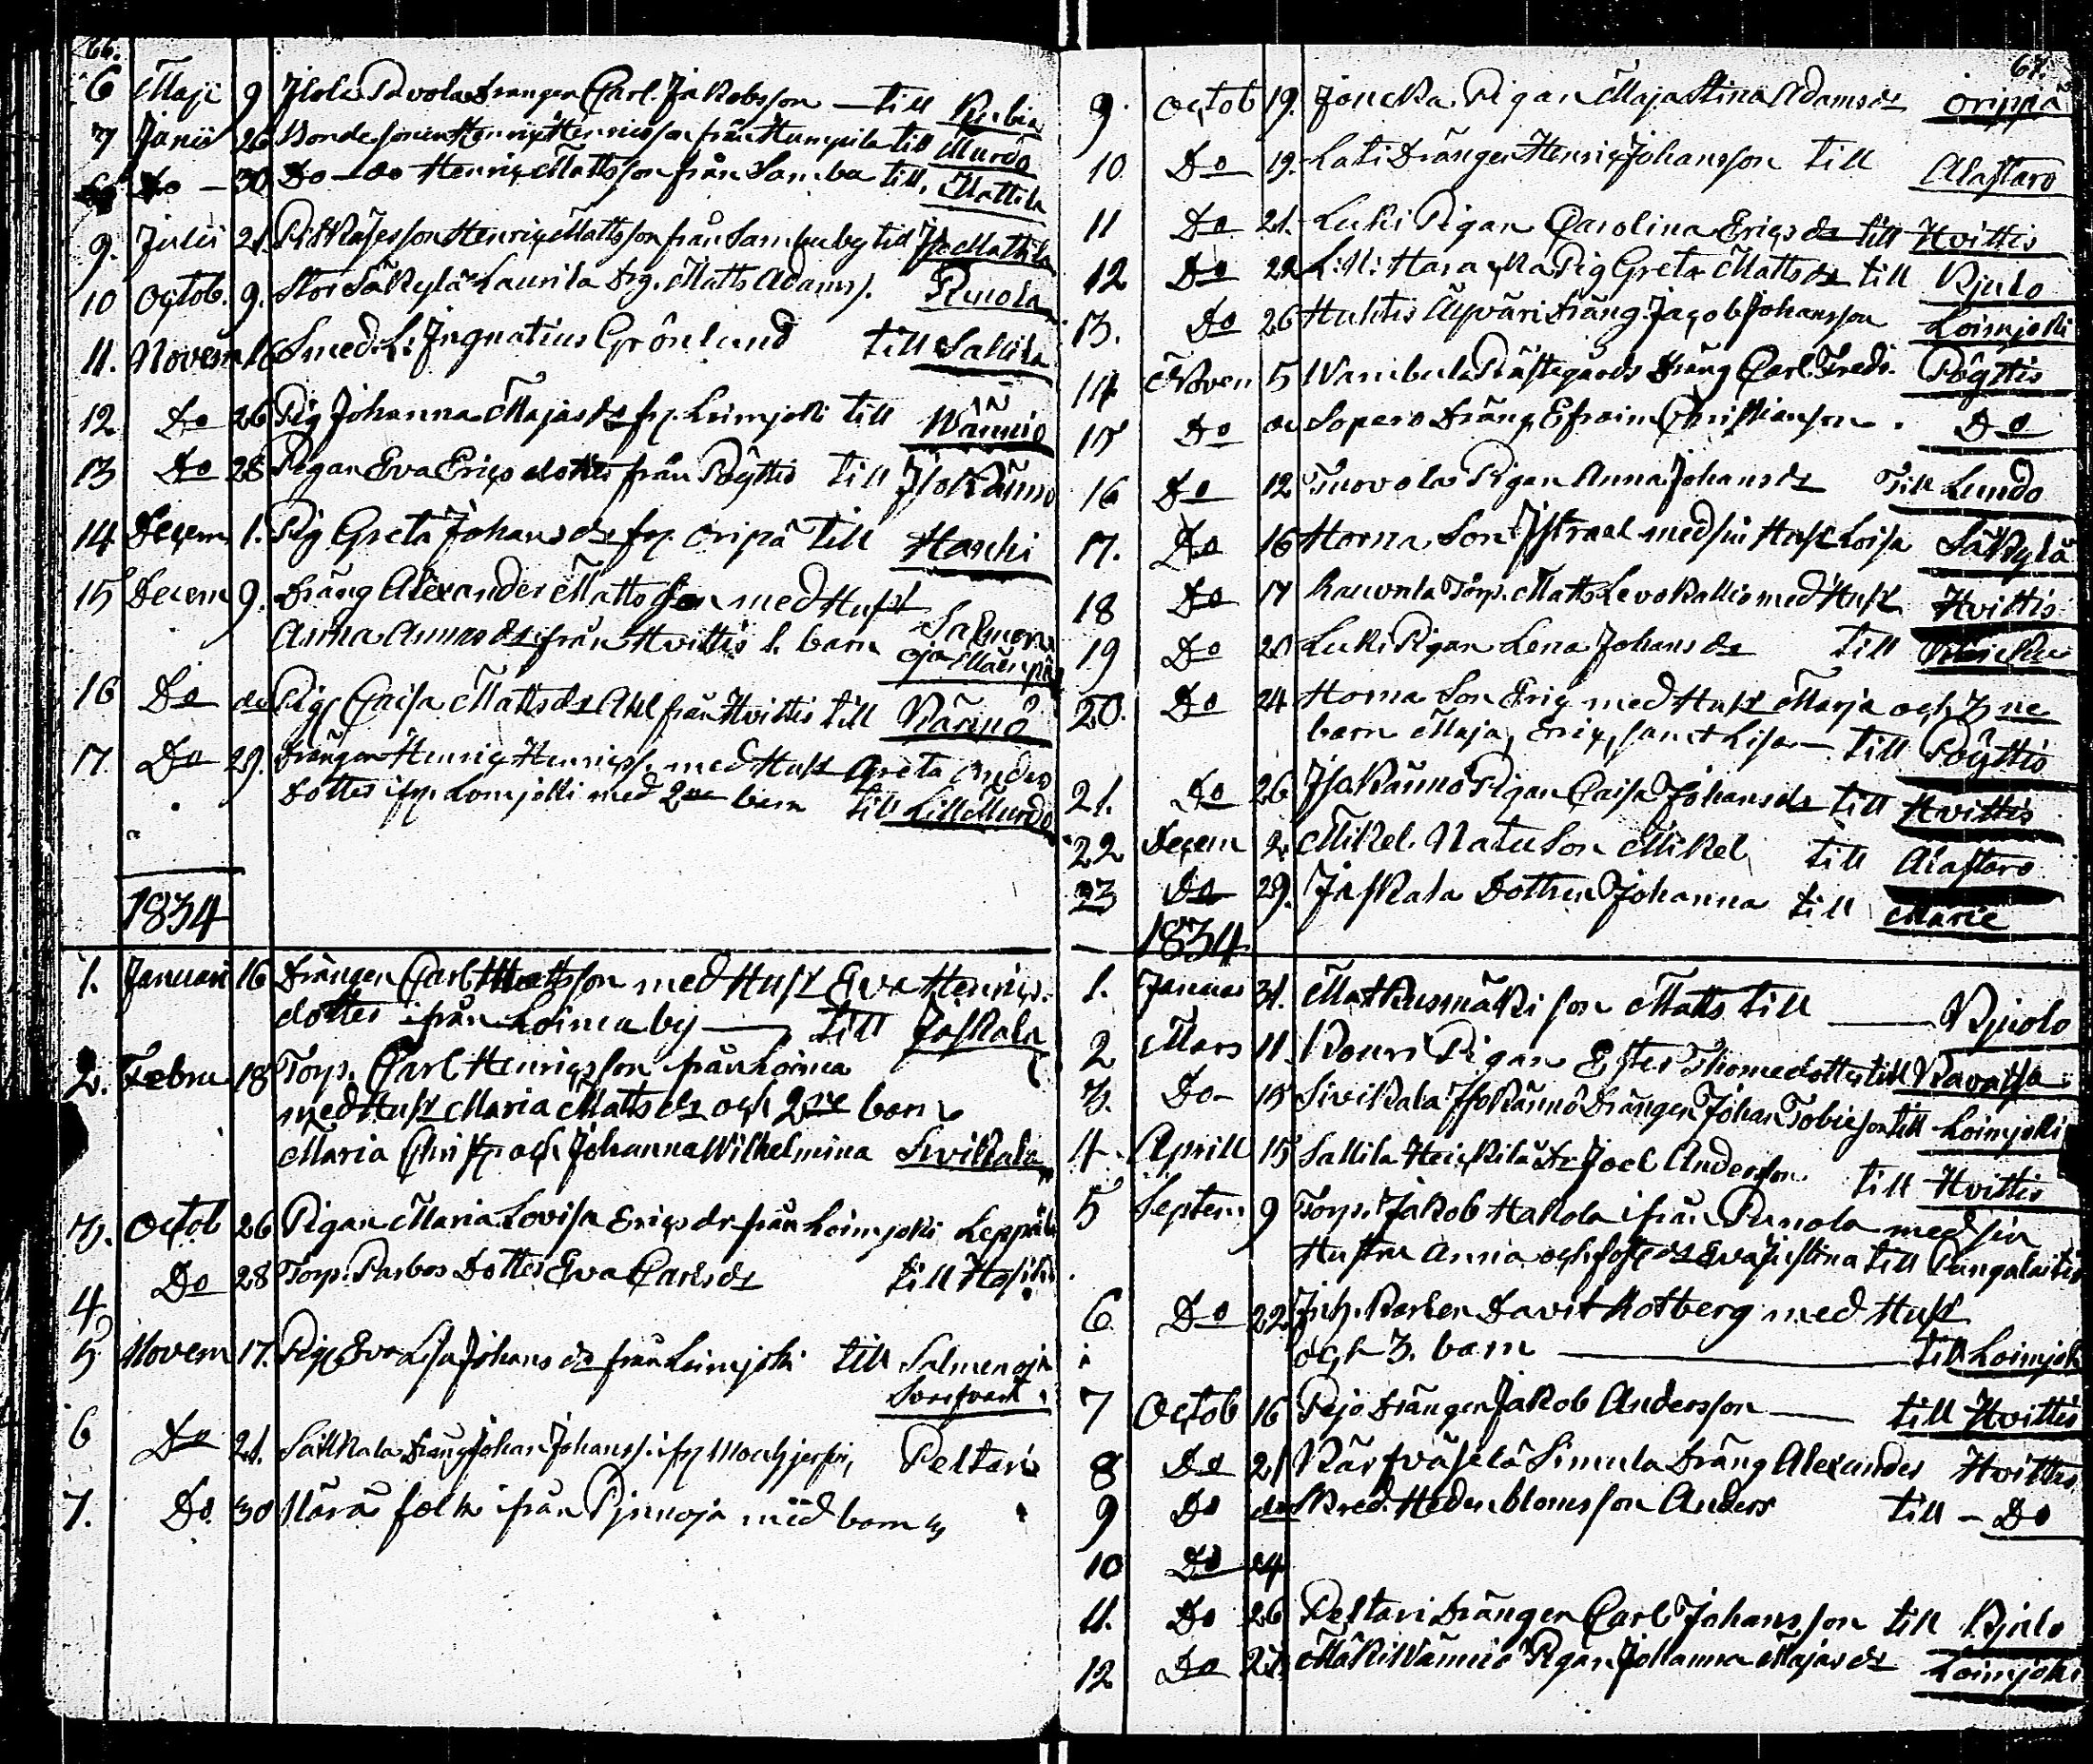 66.
6 Maji 9 Isola Pavola Drängen Carl Jakobsson — till
7 Junii 26 Bondesonen Henriç Henricsson från Humpila till Murdo
Do — 30 Do — do Henriç Mattsson från Samba till, Mattila
9. Julii 21. Henriç Mattsson från Sambu by till Mattila
10 Octob. 9. Stor Säkylä Laurila Drg. Matts Adams.
11. Novem 16 Smed. L: Ingnatius Grönlund till Sallila
12 Do 26 Pig Johanna Majasdr fr. Loimjoki till Wännio
13 Do 28 Pigan Eva Eriçs dotter från Pöyttis till Isokännö
14 Deçem 1. Pig Greta Johansdr fr. Oripä till Hanhi
15 Decem 9. Dräng Alexander Matts Son med Hust
Anna Annasdr från Hvittis 1. barn Salmen
oja
16 Do do Pig Caisa Mattsdr från Hvittis till Kännö
17 Do 29. Drängen Henriç Henricss. med Hust Greta Anders
Dotter ifr. Loimjokki med 2ne barn till Lill Murdo
1834
1. Januari 16 Drängen Carl Mattsson med Hust Eva Henriçs.
dotter ifrån Loimaby — till Jaskala
2. Febru 18 Torp. Carl Henriçsson från Loima
med Hust Maria Mattsdr och 2ne barn
Maria Christ. och Johanna Wilhelmina Sivikala
3. Octob 26 Pigan Maria Lovisa Eriçsdr från Loimjoki
4 Do 28 Torp. Parbos Dotter Eva Carlsdr till
5 Novem 17. Pig Eva Lisa Johansdr från Loimjoki till Salmenoja
6 Do 21. Säkkala Dräng Johan Johanss. Peltari
7. Do. 30 folk ifrån med barn
67.
9. Octob 19. Joncka Pigan Maja Stina Adamsdr Orippä
10 Do 19. Lati Drängen Henriç Johansson till Alastaro
11 Do 21. Luki Pigan Carolina Eriçsdr till Hvittis
12 Do 22 Pig Greta Mattsdr till Kjulo
13. Do 26 Huhtis Äyväri Dräng Jaçob Johansson Loimjoki
14 Noven 5 Wambula Prästegårds Dräng Carl Fredr. Pöyttis
15 Do do Sopero Dräng Efraim Christianson. Do
16 Do 12 Tuovola Pigan Anna Johansdr Till Lundo
17. Do 16 Horna Son Istrael med sin Hust Loisa Säkylä
18 Do 17 Rauvola Torp. Matts Levokallio med Hust Hvittis
19 Do 20 Luki Pigan Lena Johansdr till
20. Do 24 Horna Son Eriç med Hust Marja och 3ne
barn Maja, Eriç, samt Lisa — till Pöyttis
21. Do 26 Isokännö Pigan Caisa Johansdr till Hvittis
22 Deçem 2. Mikel. Natu Son Mikel till Alastaro
23 Do 29. Jaskala Dottren Johanna till Marie
1834
1. Januar 31. Matkusmäki son Matts till — Kjulo
2 Mars 11. Kouri Pigan Ester Thomedotter till
3. Do — 15 Sivikala Isokännö Drängen Johan Tobieson till Loimjoki
4. Aprill 15 Sallila Heickilä Dr Joel Andersson. till Hvittis
5 Septem 9 Torp. Jakob Hakola ifrån Punola med sin
Hustru Anna och Eva Justina till Pungalaitio
6 Do 22 Inh. Karlen Davit Motberg med Hust
och 3. barn — till Loimjok
7 Octob 16 Pejo Drängen Jakob Andersson — till Hvittis
8 Do 21 Kärfväselä Simula Dräng Alexander Hvittis
9 Do do Skred. Hedenbloms son Anders till — Do
10 Do 24
11. Do 26 Peltari Drängen Carl Johansson till Kjulo
12 Do 27. Mäki Wännio Pigan Johanna Majasdr Loimjoki